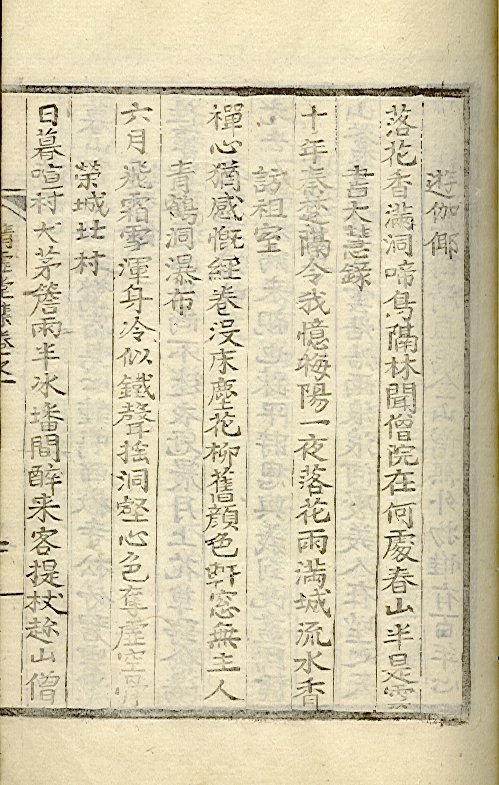 遊伽倻
落花香滿洞啼鳥隔林聞僧院在何處春山半是雲
書大慧錄
十年秦楚隔令我憶梅陽一夜落花雨滿城流水香
訪祖室
禪心猶感慨經卷沒床塵花柳舊顔色軒窓無主人
青鶴洞瀑布
六月飛霜雪渾身冷似鐵聲搖洞壑心色奪虛空骨
榮城北村
日暮喧村犬茅簷雨半氷墦間醉来客提杖趂山僧
清虛堂集卷之一